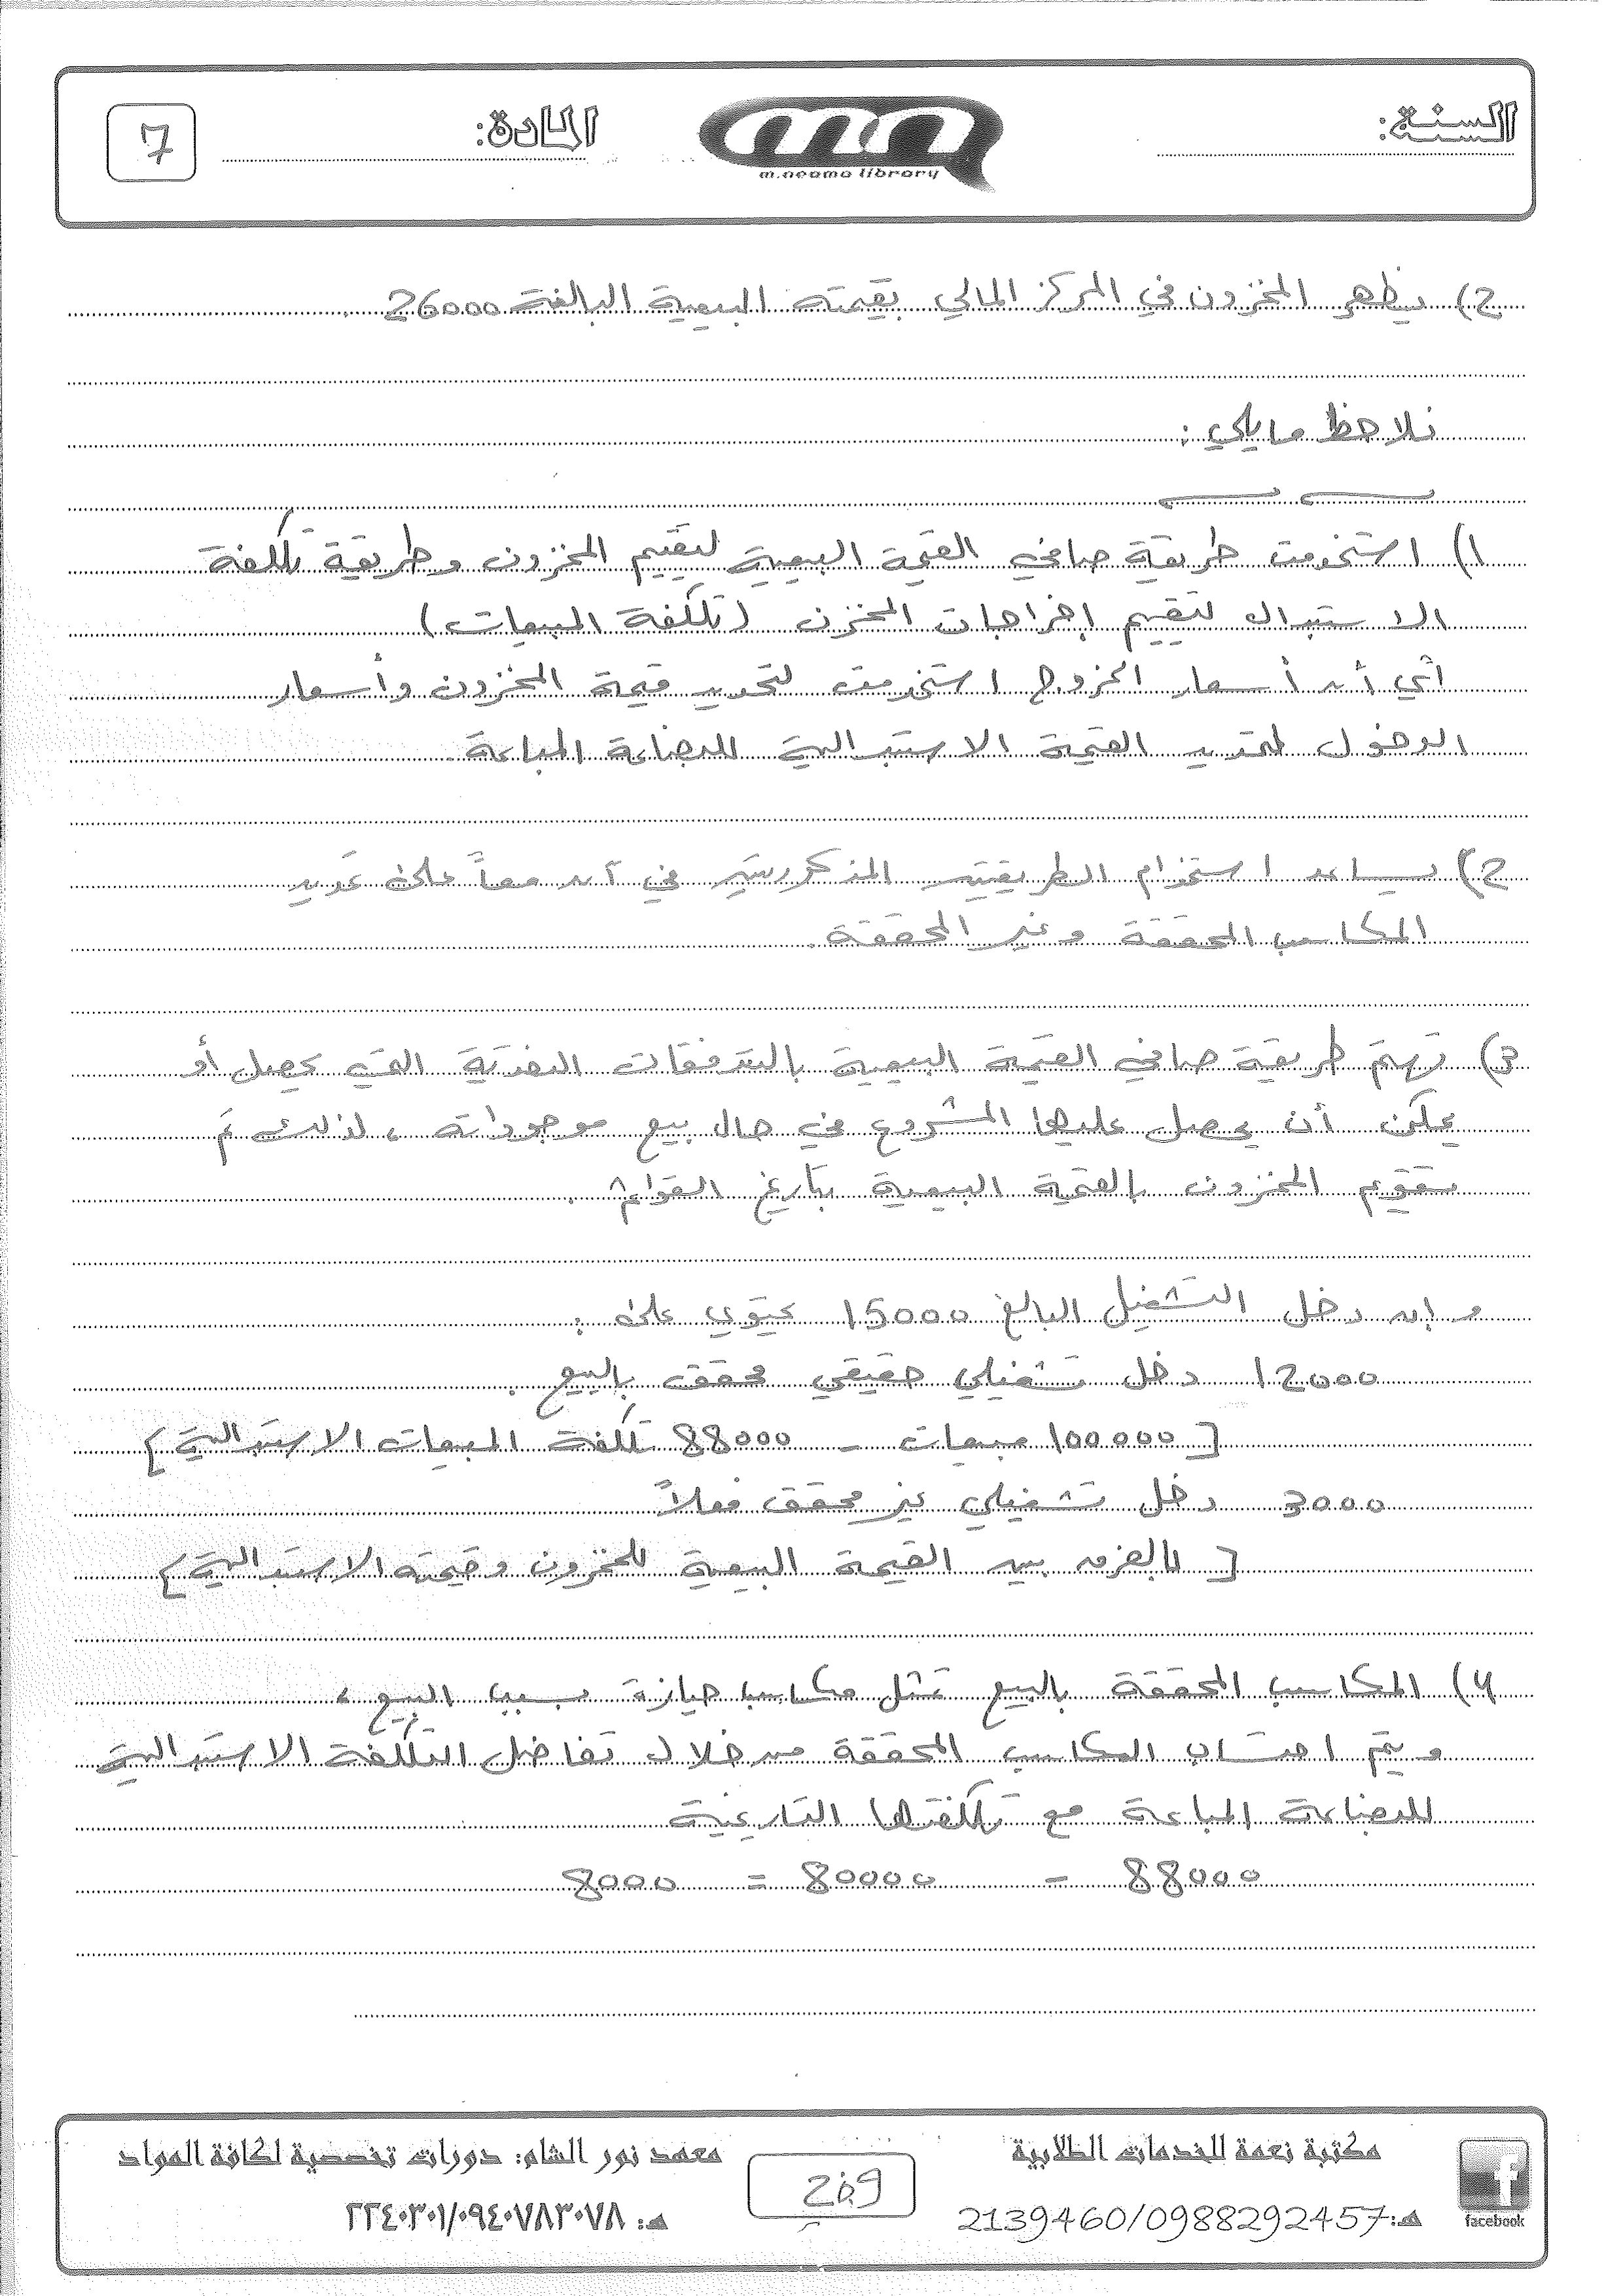 السنة:
المادة:
7
m.neama library
2) يظهر المخزون في المركز المالي بقيمته البيعية البالغة 26000.
نلاحظ مايلي:
1) استخدمت طريقة صافي القيمة البيعية لتقييم المخزون وطريقة تكلفة
الاستبدال لتقييم إخراجات المخزن (تكلفة المبيعات)
أي أن أسعار الخروج استخدمت لتحديد قيمة المخزون وأسعار
الدخول لتحديد القيمة الاستبدالية للبضاعة المباعة.
2) يساعد استخدام الطريقتين المذكورتين في آن معاً على تحديد
المكاسب المحققة وغير المحققة.
3) تهتم طريقة صافي القيمة البيعية بالتدفقات النقدية التي يحصل أو
يمكن أن يحصل عليها المشروع في حال بيع موجوداته، لذلك تم
تقويم المخزون بالقيمة البيعية بتاريخ القوائم.
وإن دخل التشغيل البالغ 15000 يحتوي على:
12000 دخل تشغيلي حقيقي محقق بالبيع.
[100000 مبيعات - 88000 تكلفة المبيعات الاستبدالية]
3000 دخل تشغيلي غير محقق فعلاً
[بالفرق بين القيمة البيعية للمخزون وقيمته الاستبدالية]
4) المكاسب المحققة بالبيع تمثل مكاسب حيازة بسبب البيع،
ويتم احتساب المكاسب المحققة من خلال تفاضل التكلفة الاستبدالية
للبضاعة المباعة مع تكلفتها التاريخية
88000 - 80000 = 8000
مكتبة نعمة للخدمات الطلابية
هـ: 2139460/0988292457
facebook
معهد نور الشام: دورات تخصصية لكافة المواد
هـ: ٢٢٤٠٣٠١/٠٩٤٠٧٨٣٠٧٨